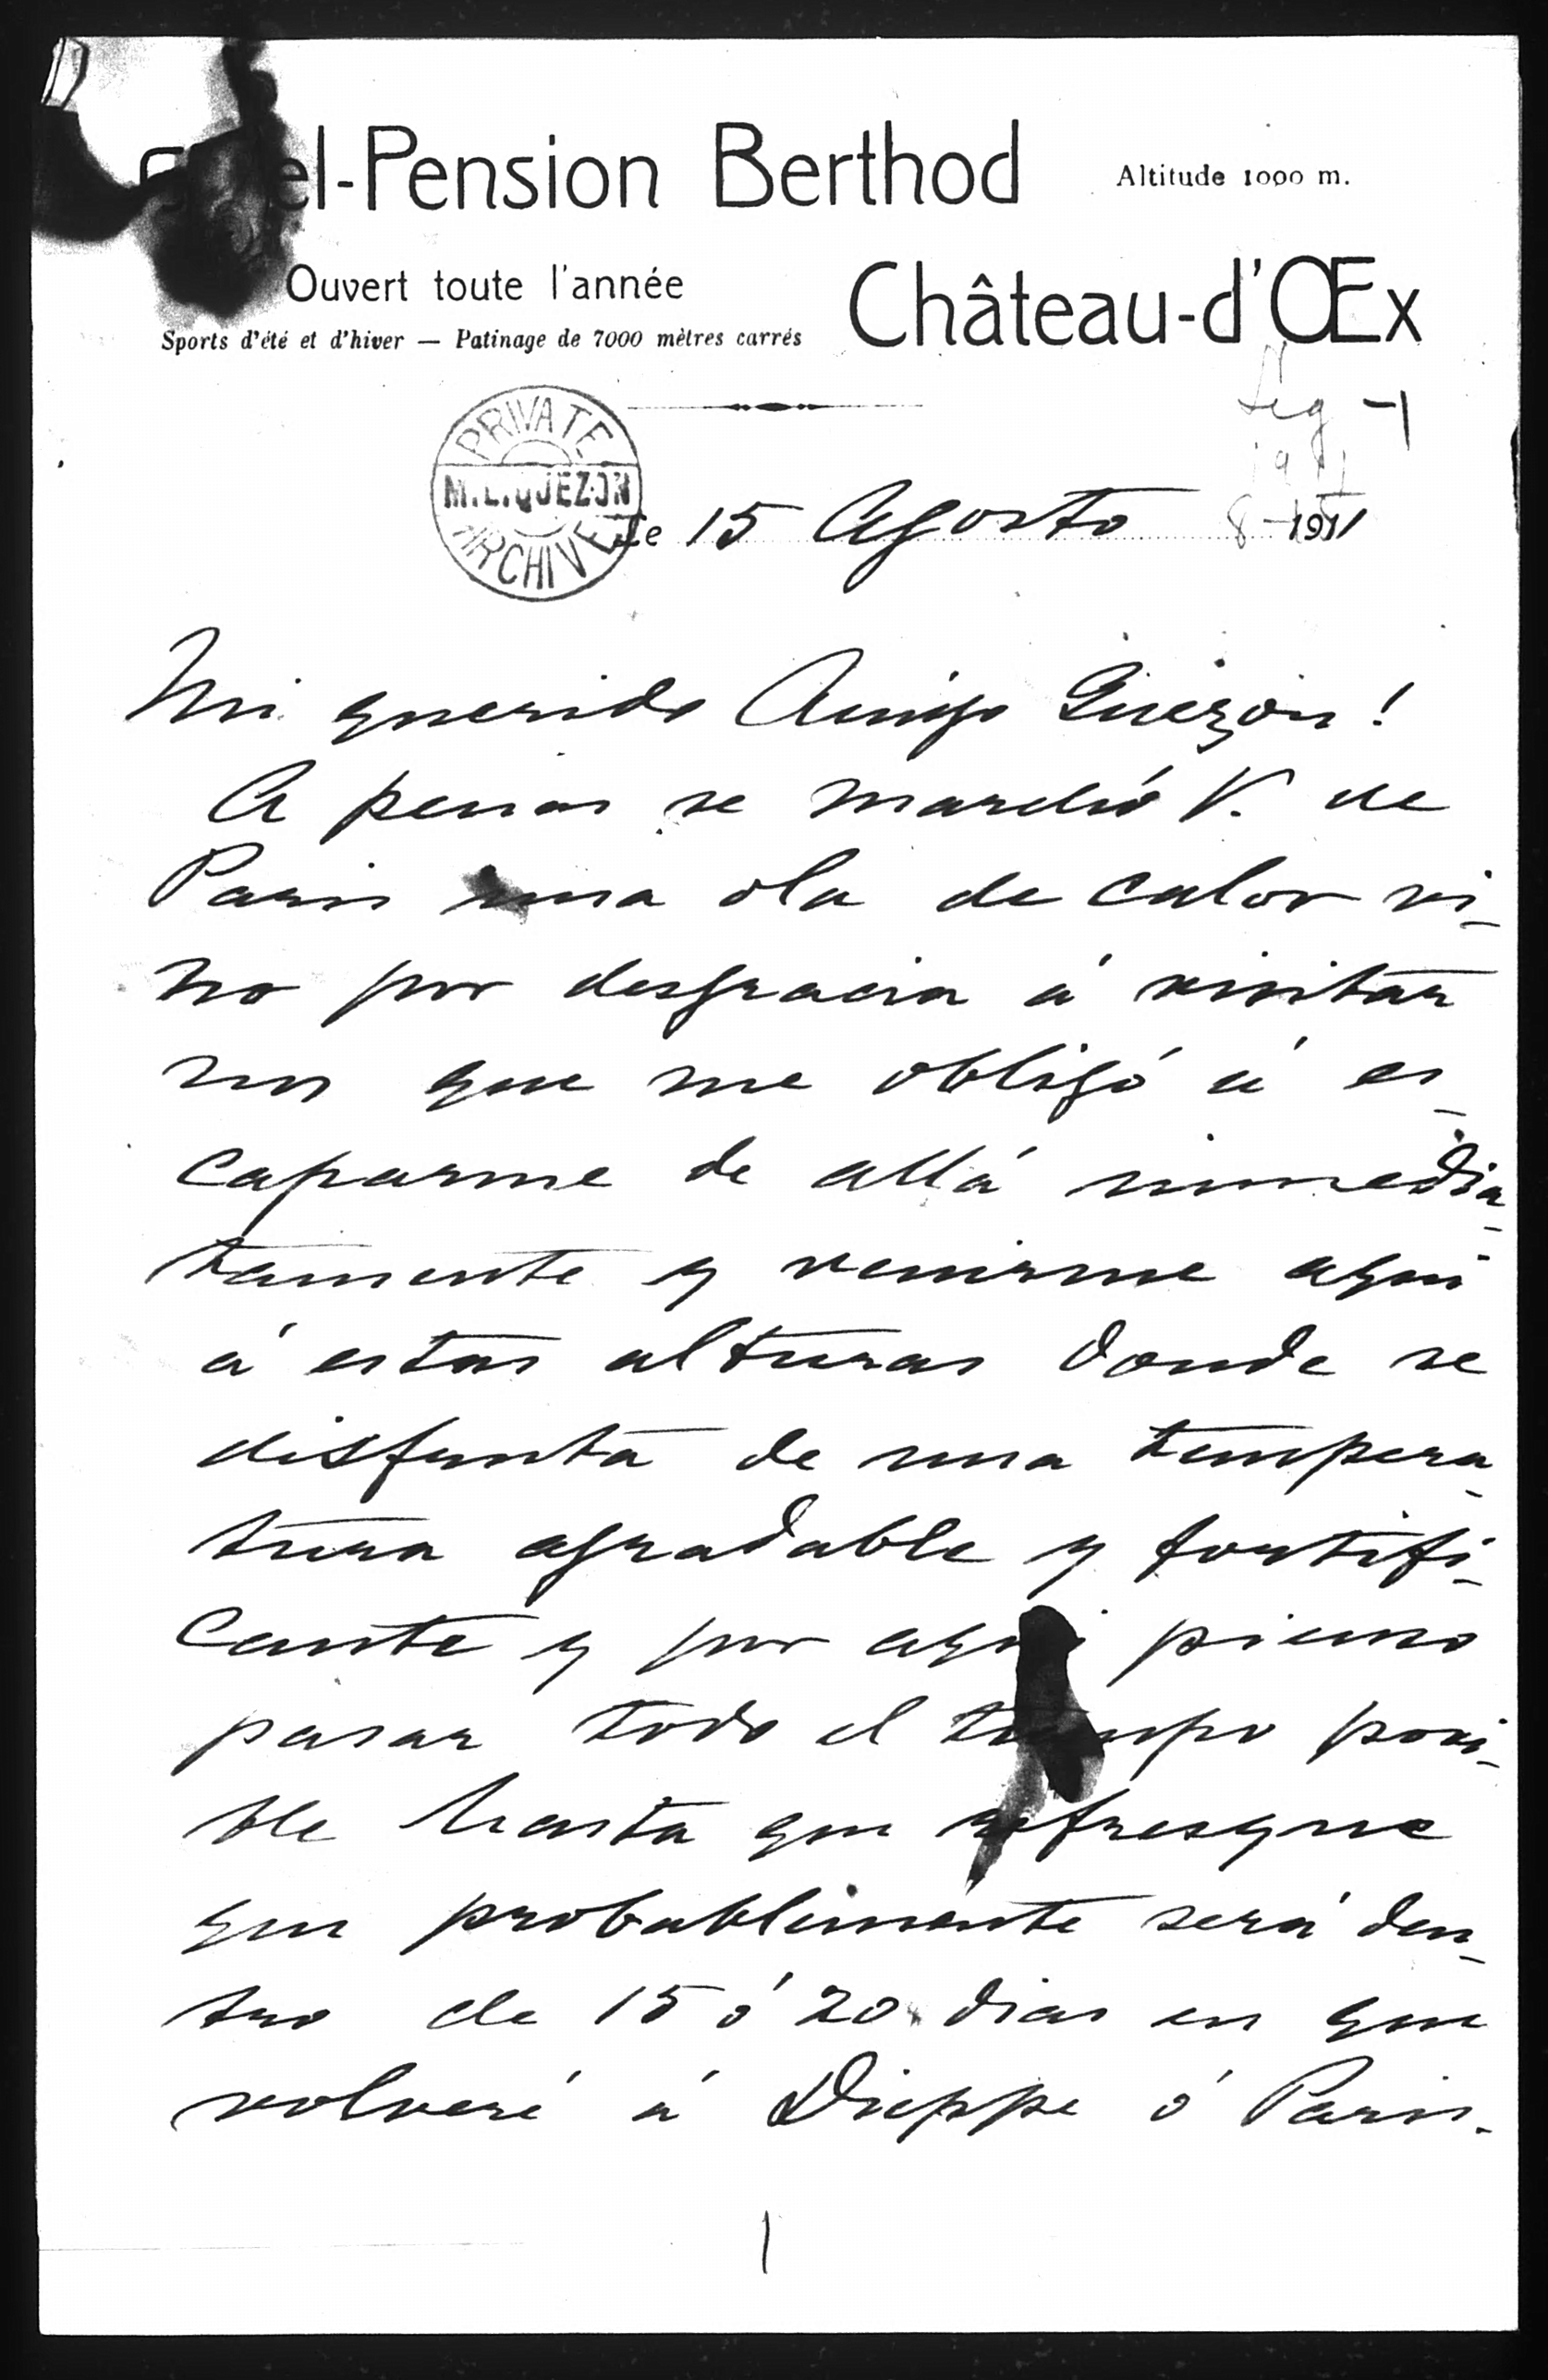 el-Pension Berthod
Altitude 1000 m.
Ouvert toute l'année
Château-d'Œx
Sports d'été et d'hiver — Patinage de 7000 mètres carrés
PRIVATE
M.L.QUEZON
ARCHIVE
-1
le 15 Agosto 1911
Mi querido Amigo Quezon!
A penas se marchó V. de
Paris una ola de calor vi-
no por desgracia á visitar
nos que me obligó á es-
caparme de allá inmedia-
tamente y venirme aqui
á estas alturas donde se
disfruta de una tempera-
tura agradable y fortifi-
cante y por aqui pienso
pasar todo el tiempo posi-
ble hasta que refresque
que probablemente será den-
tro de 15 ó 20 dias en que
volveré á Dieppe ó Paris.
1